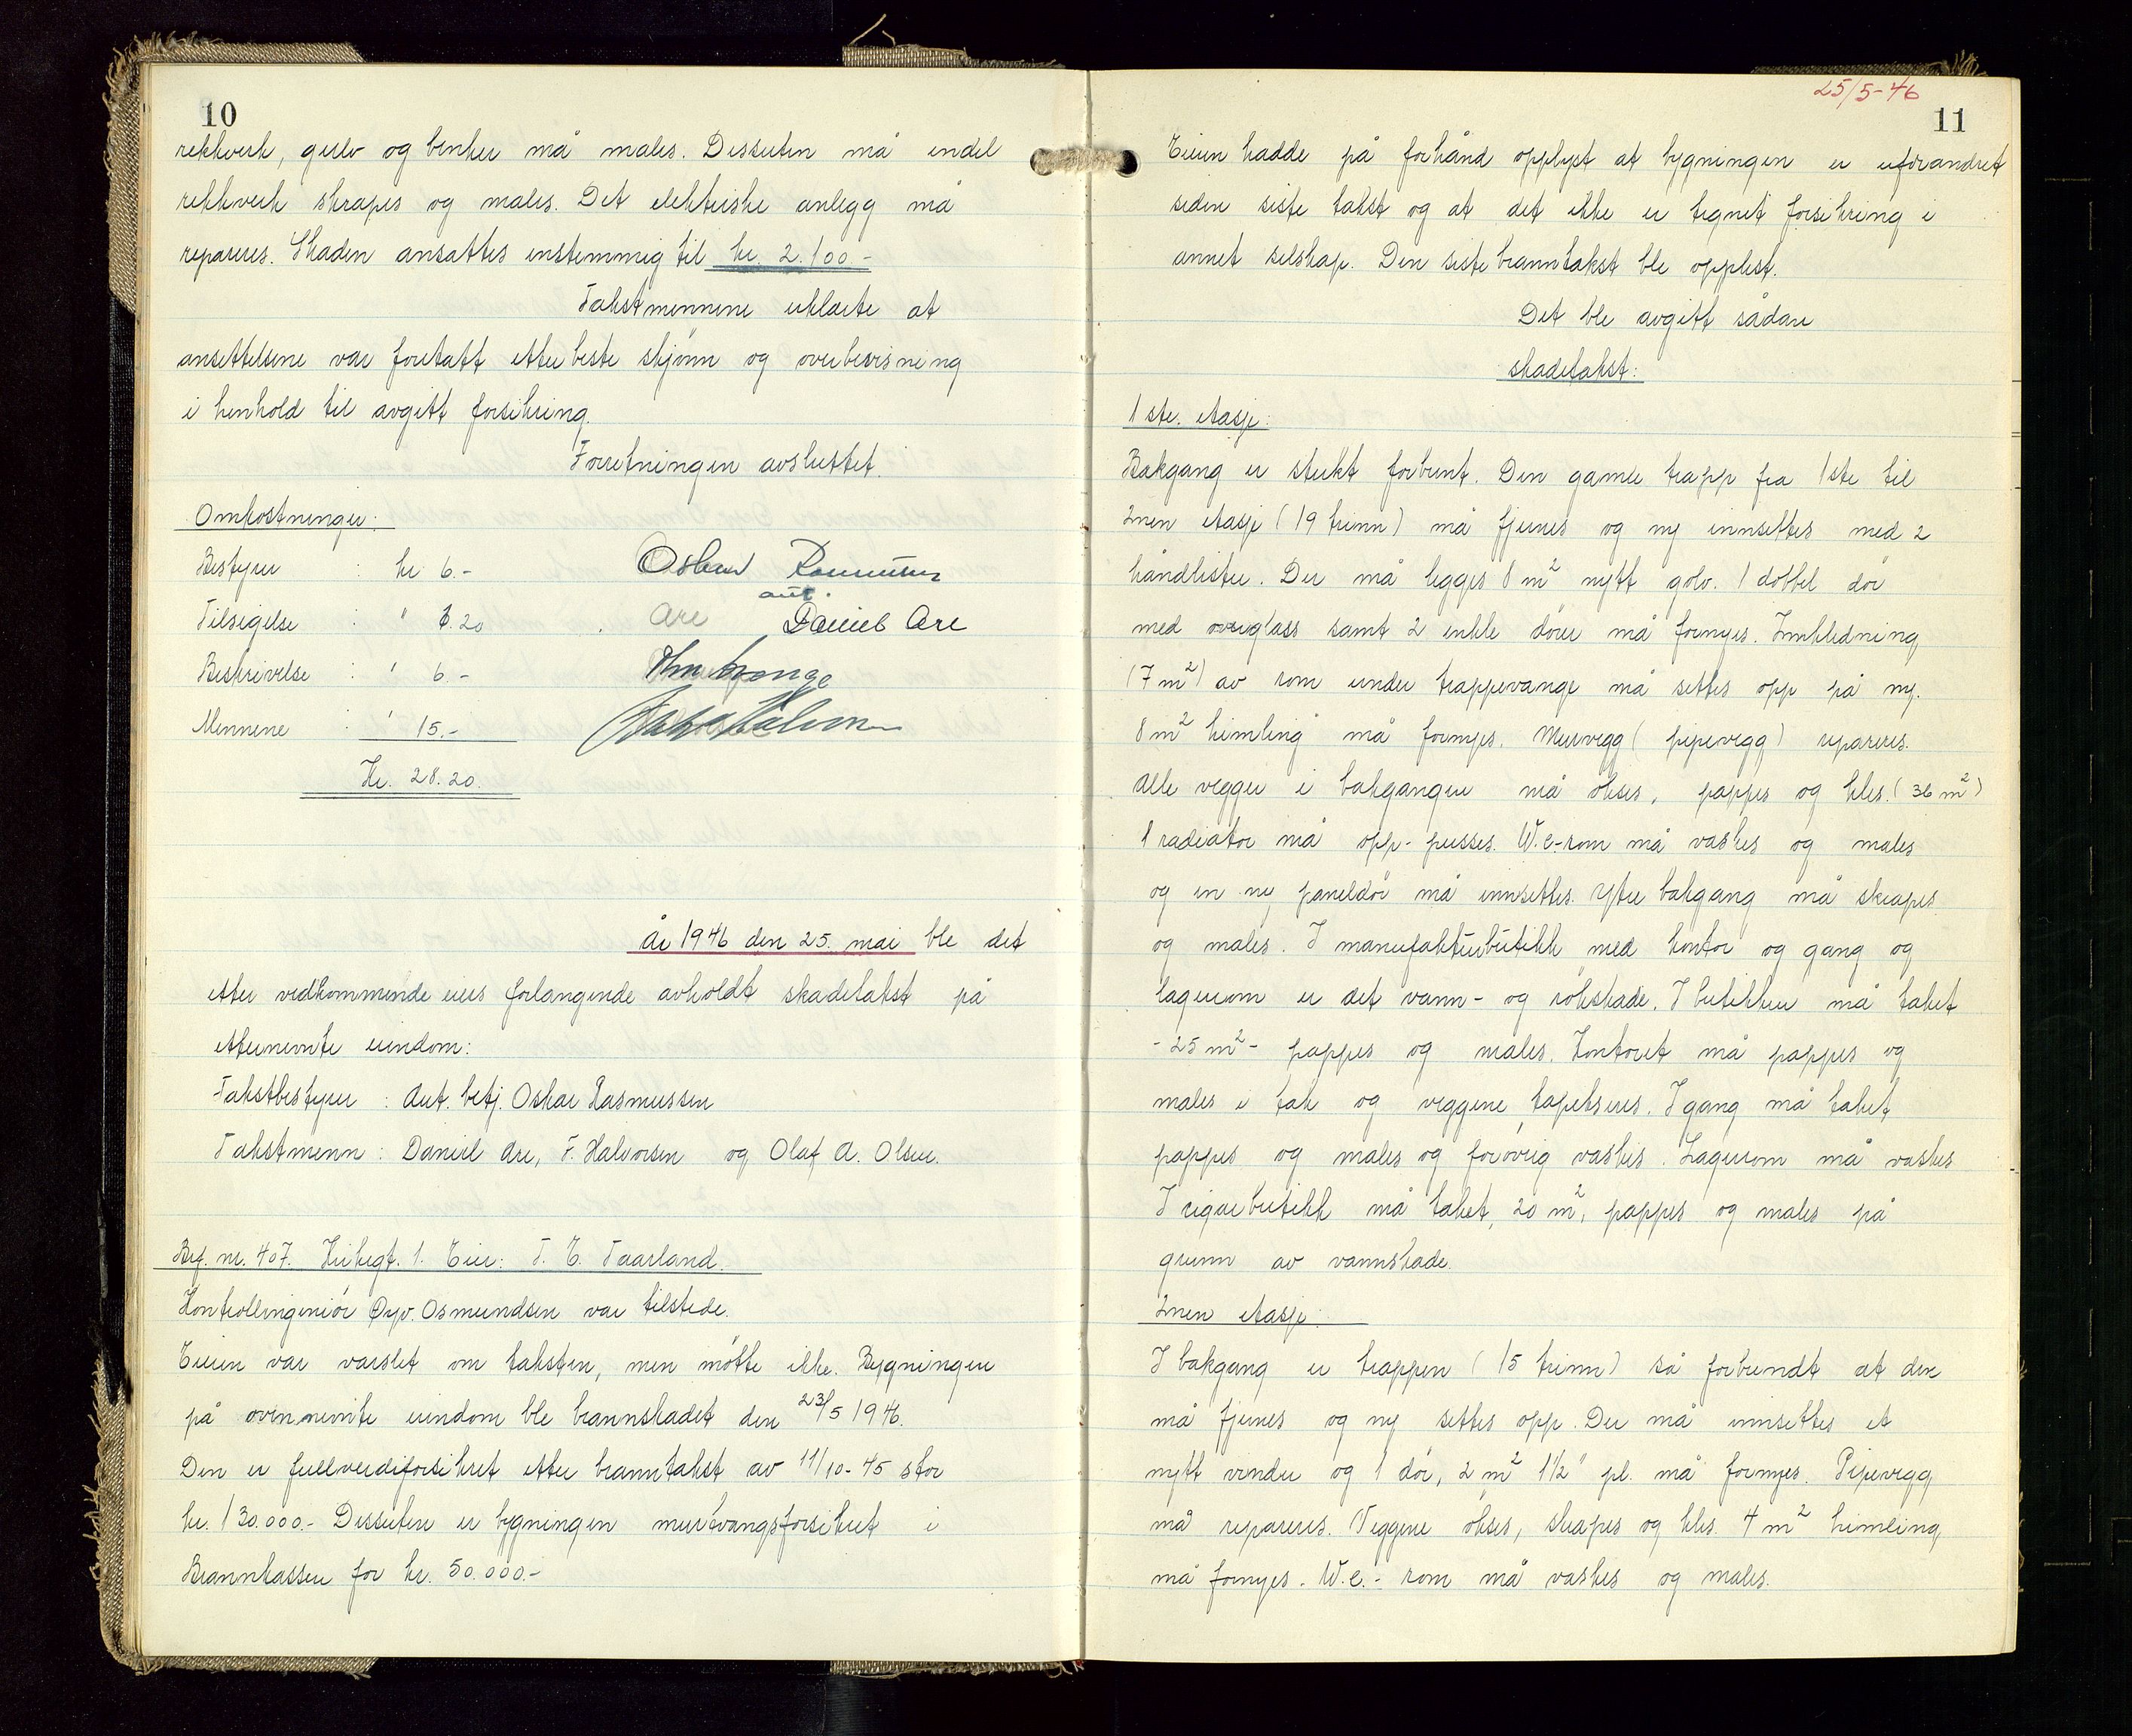 10
rekkverk, gulv og benker må males. Dessuten må endel
rekkverk skrapes og males. Det elektriske anlegg må
repareres. Skaden ansattes enstemmig til kr. 2.100.-
Takstmennene erklærte at
ansettelsene var foretatt etter beste skjønn og overbevisning
i henhold til avgitt forsikring.
Forretningen avsluttet.
Omkostninger:
Bestyrer : kr 6.- Oskar Rasmussen
aut.
Tilsigelse : " 1.20 Are Daniel Are
Beskrivelse : " 6.-
Mennene : " 15.-
Kr. 28.20.
År 1946 den 25. mai ble det
etter vedkommende eiers forlangende avholdt skadetakst på
etternevnte eiendom:
Takstbestyrer : Aut. betj. Oskar Rasmussen
Takstmenn : Daniel Are, F. Halvorsen og Olaf A. Olsen.
Brf. nr. 407. Kirkegt. 1. Eier: T. E. Taarland.
Kontrollingeniör Øyv. Osmundsen var tilstede.
Eieren var varslet om taksten, men møtte ikke. Bygningen
på ovennevnte eiendom ble brannskadet den 23/5 1946.
Den er fullverdiforsikret etter branntakst av 11/10-45 stor
kr. 130.000.- Dessuten er bygningen murtvangsforsikret i
Brannkassen for kr. 50.000.-
25/5-46
11
Eieren hadde på forhånd opplyst at bygningen er uforandret
siden siste takst og at det ikke er tegnet forsikring i
annet selskap. Den siste branntakst ble opplest.
Det ble avgitt sådan
skadetakst:
1ste. etasje:
Bakgang er sterkt forbrent. Den gamle trapp fra 1ste til
2nen etasje (19 trinn) må fjernes og ny innsettes med 2
håndlister. Der må legges 8 m² nytt golv. 1 dobbel dør
med overglass samt 2 enkle dører må fornyes. Innkledning
(7 m²) av rom under trappevange må settes opp på ny.
8 m² himling må fornyes. Murvegg (pipevegg) repareres.
Alle vegger i bakgangen må økses, pappes og kles. (36 m²)
1 radiator må opp-pusses. W.c-rom må vaskes og males
og en ny paneldør må innsettes. Ytre bakgang må skrapes
og males. I manufakturbutikk med kontor og gang og
lagerrom er det vann- og røkskade. I butikken må taket
- 25 m² - pappes og males. Kontoret må pappes og
males i tak og veggene tapetseres. I gang må taket
pappes og males og forøvrig vaskes. Lagerrom må vaskes
I sigarbutikk må taket, 20 m², pappes og males på
grunn av vannskade.
2nen etasje:
I bakgang er trappen (15 trinn) så forbrendt at den
må fjernes og ny settes opp. Der må innsettes et
nytt vindu og 1 dør, 2 m² 1½" pl. må fornyes. Pipevegg
må repareres. Veggene økses, skrapes og kles. 4 m² himling
må fornyes. W.c.-rom må vaskes og males.